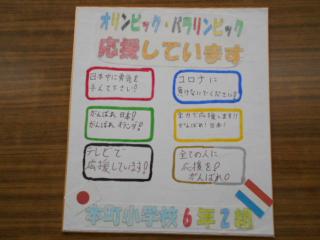 オリンピック・パラリンピック
応援しています
日本中に勇気を
与えて下さい!
コロナに
負けないでください!
がんばれ日本!
がんばれオランダ!
全力で応援します!!
がんばれ!日本!
テレビで
応援しています!
全ての人に
応援を!
がんばれ!
本町小学校6年2組